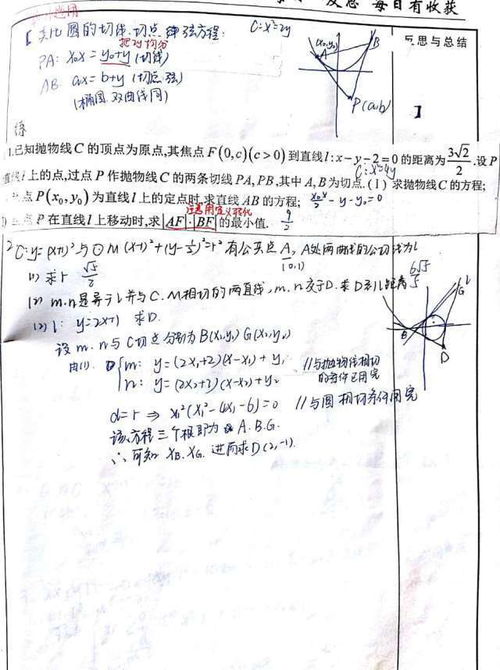 反思 每日有收获
思与总结
圆的切线、切点弦方程: C: x²=2y
把对均分
PA: x₀x = y₀+y (切线)
AB: ax = b+y (切点弦)
(椭圆、双曲线同)
(x₀,y₀)
A
B
P(a,b)
】
练
1.已知抛物线C的顶点为原点,其焦点F(0,c)(c>0)到直线l:x-y-2=0的距离为3√2/2.设P
直线l上的点,过点P作抛物线C的两条切线PA,PB,其中A,B为切点.(1)求抛物线C的方程; C: x²=4y
点P(x₀,y₀)为直线l上的定点时,求直线AB的方程; x₀x/2 - y - y₀ = 0
点P在直线l上移动时,求|AF|·|BF|的最小值. 9/2
2. C: y=(x+1)² 与 ⊙M (x-1)²+(y-½)²=r² 有公共点A, A处两曲线的公切线为l
(0,1)
(1) 求r √5/2
(2) m.n是异于l并与C.M相切的两直线, m.n交于D. 求D到l距离 6√5/5
(2) l: y=2x+1 求D.
设m、n与C切点分别为B(x₁,y₁) G(x₂,y₂)
由(1). ① { m: y=(2x₁+2)(x-x₁)+y₁ //与抛物线相切
n: y=(2x₂+2)(x-x₂)+y₂ 的条件已用完
d=r ⇒ x₁²(x₁²-4x₁-6)=0 //与圆相切条件用完
该方程三个根即为A.B.G.
∴ 可知 x_B. x_G. 进而求D(2,-1).
l
G
B
D